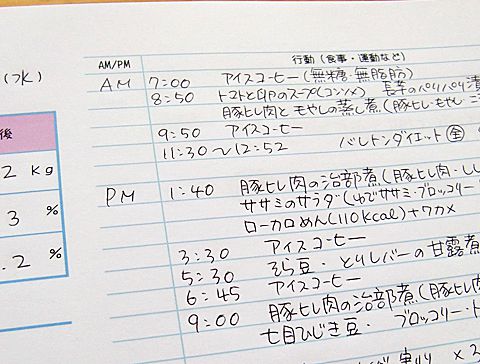 AM/PM 行動(食事・運動など)
(水)
AM 7:00 アイスコーヒー(無糖・無脂肪)
8:50 トマトと卵のスープ(コンソメ) 長芋のパリパリ漬
豚ヒレ肉ともやしの蒸し煮(豚ヒレ・もやし・ニ
後
9:50 アイスコーヒー
11:30〜12:52 バレトンダイエット 全
2 Kg
PM 1:40 豚ヒレ肉の治部煮(豚ヒレ肉・しし
3 %
ササミのサラダ(ゆでササミ・ブロッコリー
ローカロめん(110Kcal)+ワカメ
.2 %
3:30 アイスコーヒー
5:30 そら豆・とりレバーの甘露煮
6:45 アイスコーヒー
9:00 豚ヒレ肉の治部煮(豚ヒレ肉
七目ひじき豆・ブロッコリー・ト
×3